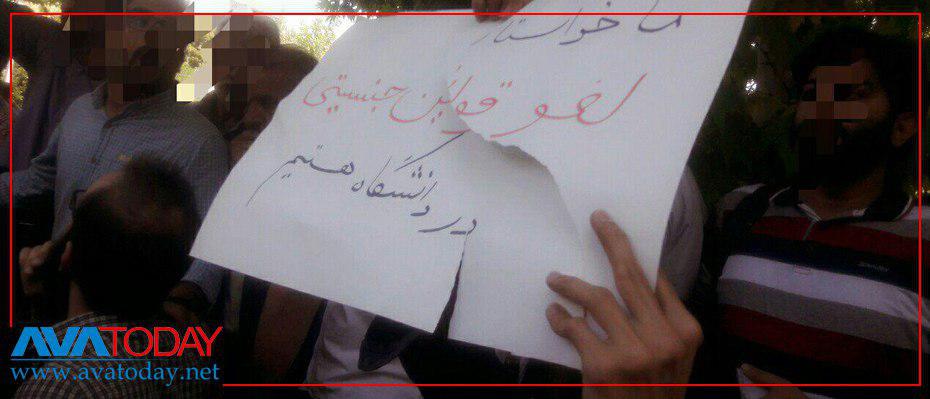 ما خواستار
لغو قوانین جنسیتی
در دانشگاه هستیم
AVATODAY
www.avatoday.net